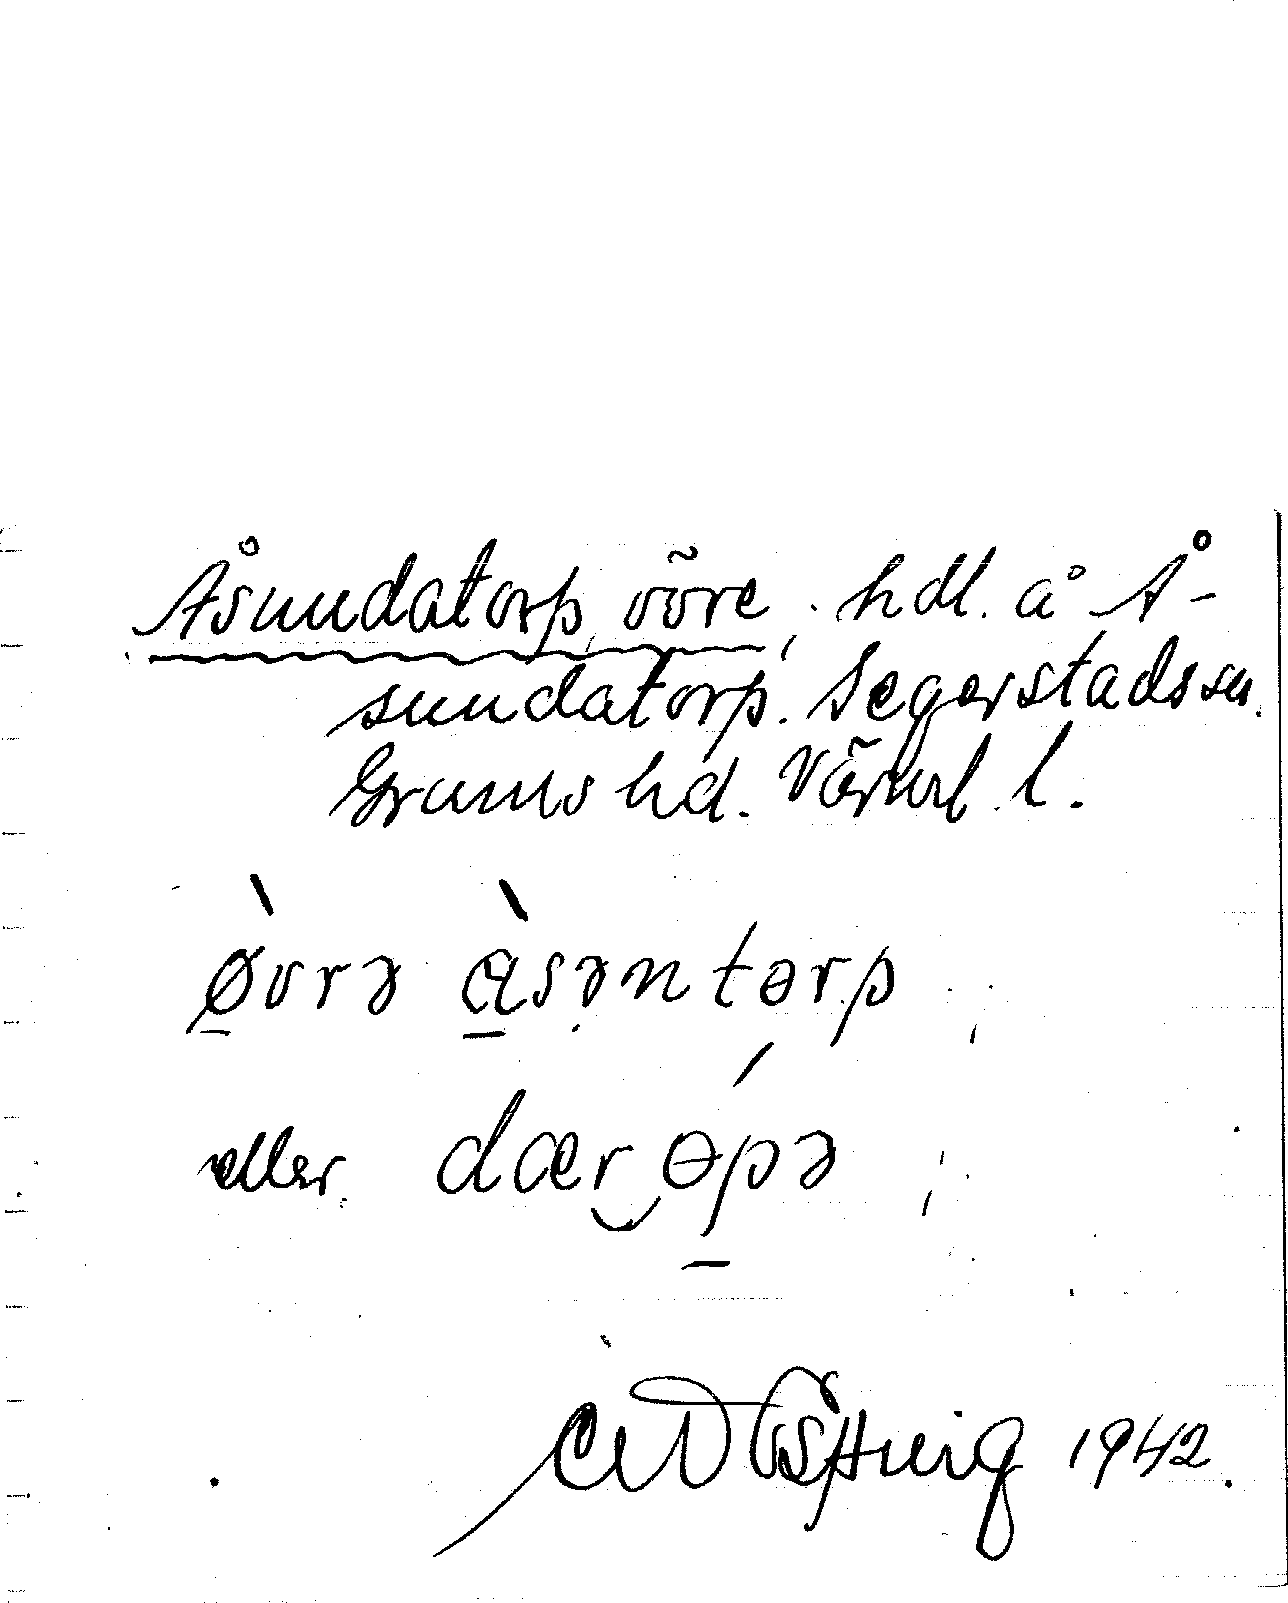 Åsundatorp, övre, hdl. å Å-
sundatorp. Segerstads sn.
Grums hd. Värml. l.
ø̀vrə àsəntɵrp
eller dær ɵ́pə
1942.